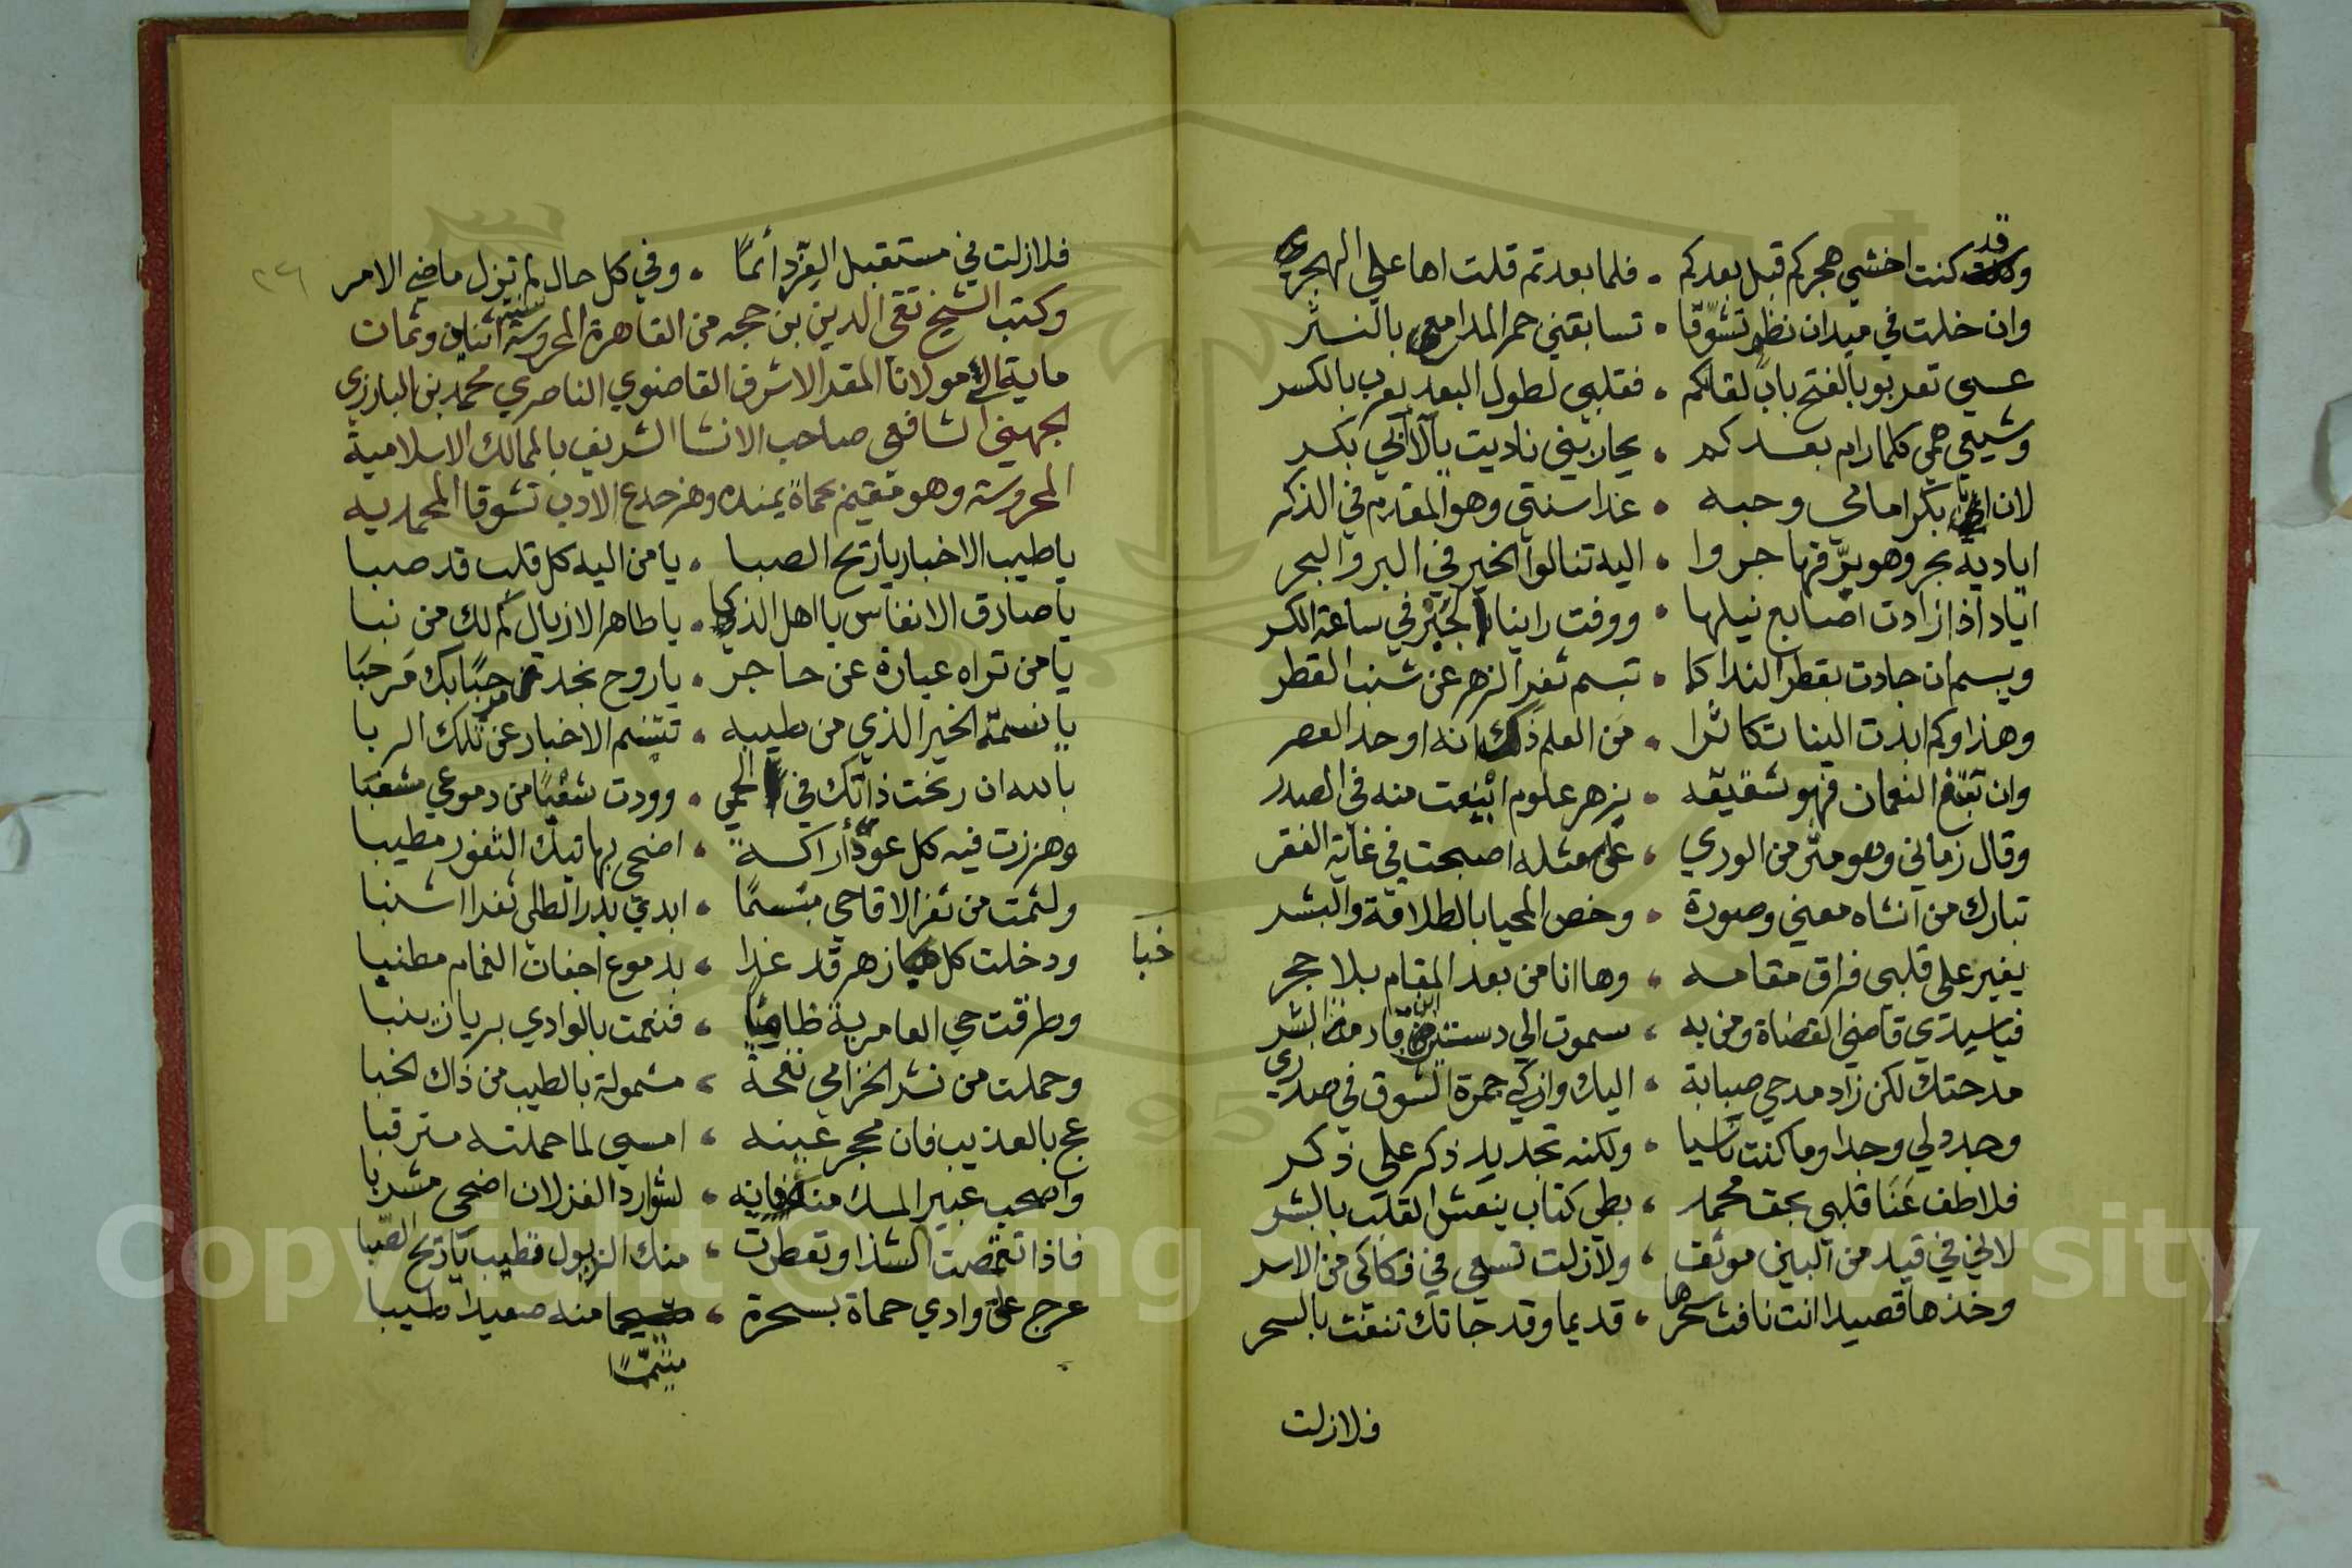 وقد كنت اخشي هجركم قبل بعدكم • فلما بعدتم قلت اها علي الهجر
وان خلت في ميدان نظم تشوقا • تسابقني حمر المدامع بالنثر
عسي تعربو بالفتح باب لقائكم • فقلبي لطول البعد يعرب بالكسر
وشيعي همي كلما رام بعدكم • يحاربني ناديت يآل ابي بكر
لان ابا بكر امامي وحبه • غدا سنتي وهو المقدم في الذكر
اياديه بحر وهو بر فهاجروا • اليه تنالوا الخير في البر والبحر
اياد اذا زادت اصابع نيلها • ووفت راينا الجبر في ساعة الكسر
ويبسم ان جادت بقطر الندا كما • تبسم ثغر الزهر عن شنب القطر
وهذا وكم ابدت الينا تكاثرا • من العلم ذلك انه اوحد العصر
وان تبغ النعمان فهو شقيقه • بزهر علوم اينعت منه في الصدر
وقال زماني وهو مثر من الوري • علي مثله اصبحت في غاية الفقر
تبارك من انشاه معني وصورة • وخص المحيا بالطلاقة والبشر
يغير علي قلبي فراق مقامه • وها انا من بعد المقام بلا حجر
فياسيدي قاضي القضاة ومن به • سموت الي دست قاد من البشر
مدحتك لكن زاد مدحي صبابة • اليك واذكي جمرة الشوق في صدري
وجدد لي وجدا وما كنت ناسيا • ولكنه تجديد ذكر علي ذكر
فلاطف عنا قلبي بحق محمد • بطي كتاب ينعش القلب بالبشر
لاني في قيد من البين موثق • ولازلت تسعي في فكاكي من الاسر
وخذها قصيدا انت نافث سحرها • قديما وقد جاتك تنفث بالسحر
فلازلت
فلازلت في مستقبل العز دائما • وفي كل حال لم تزل ماضي الامر
وكتب الشيخ تقي الدين بن حجه من القاهرة المحروسة سنة اثنان وثمان
ماية الي مولانا المقر الاشرف القاضوي الناصري محمد بن البارزي
الجهيني الشافعي صاحب الانشا الشريف بالممالك الاسلامية
المحروسة وهو مقيم بحماة يمنده وهز جذع الادب تشوقا المحمديه
ياطيب الاخبار ياريح الصبا • يا من اليه كل قلب قد صبا
يا صادق الانفاس يا اهل الذكا • يا طاهر الاذيال كم لك من نبا
يا من نراه عبارة عن حاجر • يا روح نجد مرحبا بك مرحبا
يا نسمة الخير الذي من طيبه • نتنسم الاخبار عن تلك الربا
بالله ان رنحت ذاتك في الحمي • ووردت شعبا من دموعي مشعبا
وهززت فيه كل عود اراكة • اضحي بهاتيك الثغور مطيبا
ولثمت من ثغر الاقاحي مبسما • ابدي بدر الطل ثغرا اشنبا
ودخلت كل خبا زهر قد غدا • بدموع اجفان الغمام مطنبا
خبا
وطرقت حي العامرية ظاميا • فنعمت بالوادي بريان زينبا
وحملت من نشر الخزامي نفحة • مشمولة بالطيب من ذاك الخبا
عج بالعذيب فان محجر عينه • امسي لما حملته مترقبا
واصحب عبير المسك منه فانه • لشوارد الغزلان اضحي مشربا
فاذا تقمصت الشذا وتعطرت • منك الذيول فطيب ياريح الصبا
عرج علي وادي حماة بسحرة • متيمما منه صعيدا طيبا
متيمما
٢٢٦
Copyright © King Saud University